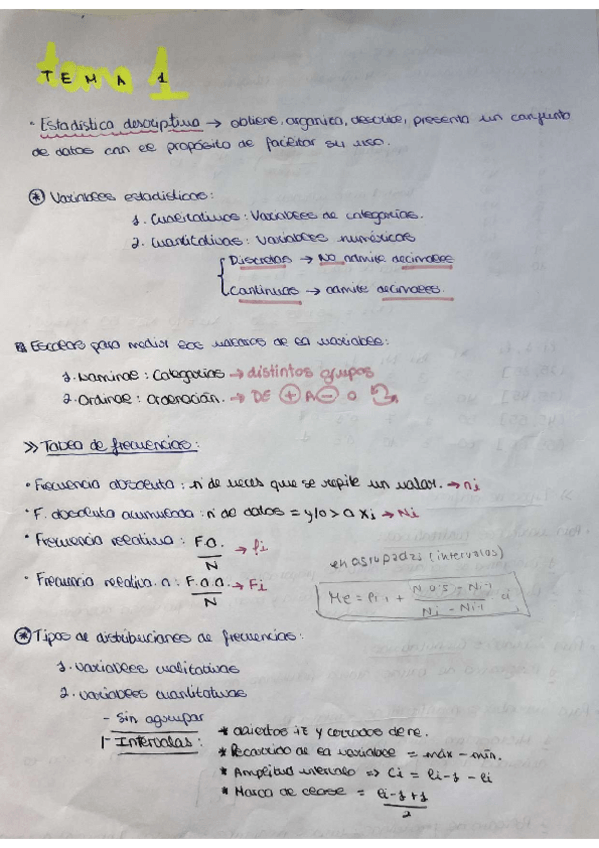 TEMA 1
· Estadística descriptiva → obtiene, organiza, describe, presenta un conjunto
de datos con el propósito de facilitar su uso.
* Variables estadísticas:
1. Cualitativas: Variables de categorías.
2. Cuantitativas: Variables numéricas
Discretas → No admite decimales
Continuas → admite decimales.
Escalas para medir los valores de la variable:
1. Nominal: Categorías → distintos grupos
2. Ordinal: ordenación. → DE + A - O
>> Tabla de frecuencias:
· Frecuencia absoluta: nº de veces que se repite un valor. → ni
· F. absoluta acumulada: nº de datos = y/o > a xi → Ni
· Frecuencia relativa: F.a. / N → fi
· Frecuencia relativa. a: F.a.a. / N → Fi
en agrupadas (intervalos)
Me = li-1 + N·0'5 - Ni-1 / Ni - Ni-1 · ai
* Tipos de distribuciones de frecuencias:
1. variables cualitativas
2. variables cuantitativas
- Sin agrupar
- Intervalos:
* abiertos izq y cerrados dere.
* Recorrido de la variable = máx - mín.
* Amplitud intervalo => Ci = li-1 - li
* Marca de clase = li-1+1 / 2